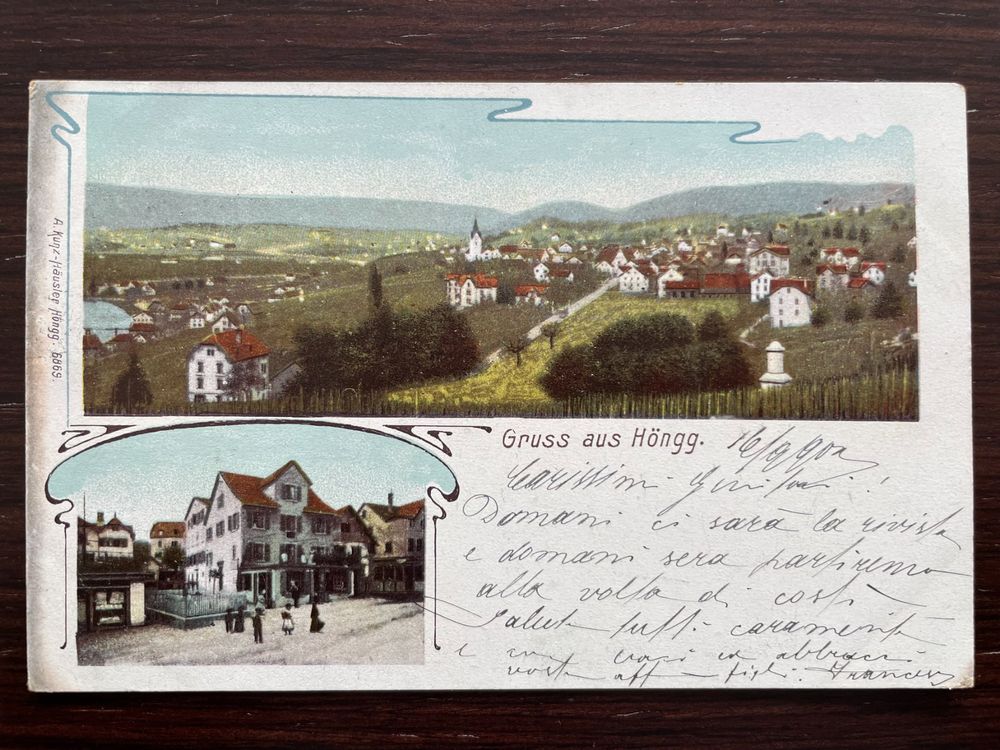 A. Kunz-Häusler, Höngg. 6869.
Gruss aus Höngg.
16/9 902
Carissimi Genitori!
Domani ci sarà la rivista
e domani sera partiremo
alla volta di costì
Saluti tutti caramente
e baci ed abbracci
vostro aff figli. Francesco